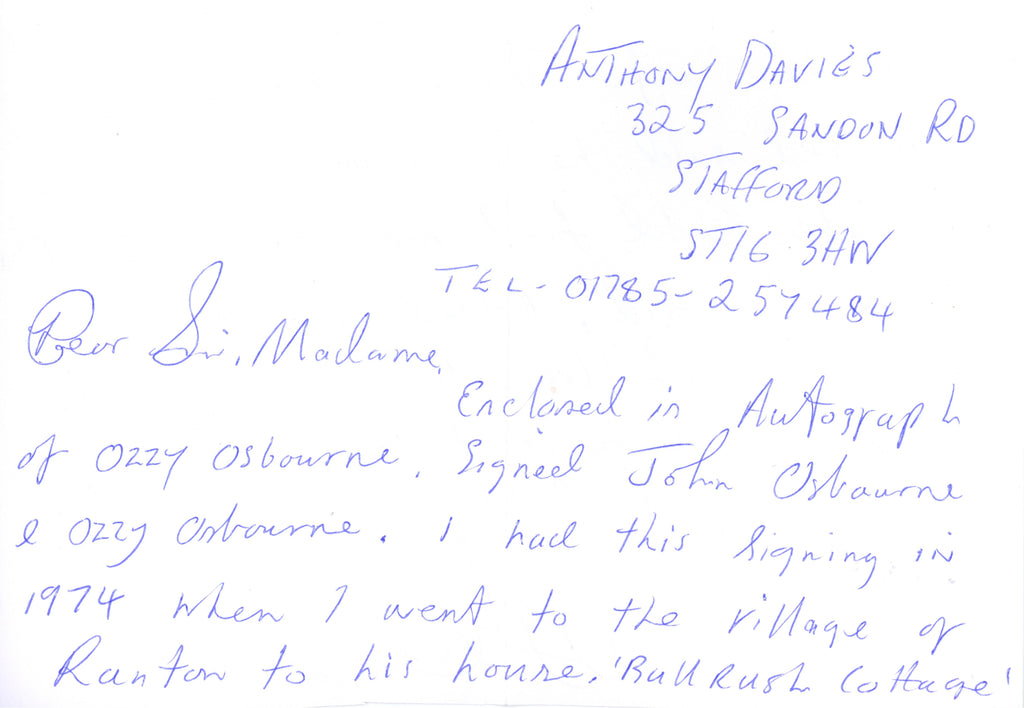 ANTHONY DAVIES
325 SANDON RD
STAFFORD
ST16 3HW
TEL - 01785-257484
Dear Sir, Madame,
Enclosed in Autograph
of Ozzy Osbourne. Signed John Osbourne
& Ozzy Osbourne. I had this signing in
1974 when I went to the village of
Ranton to his house. 'Bull Rush Cottage'